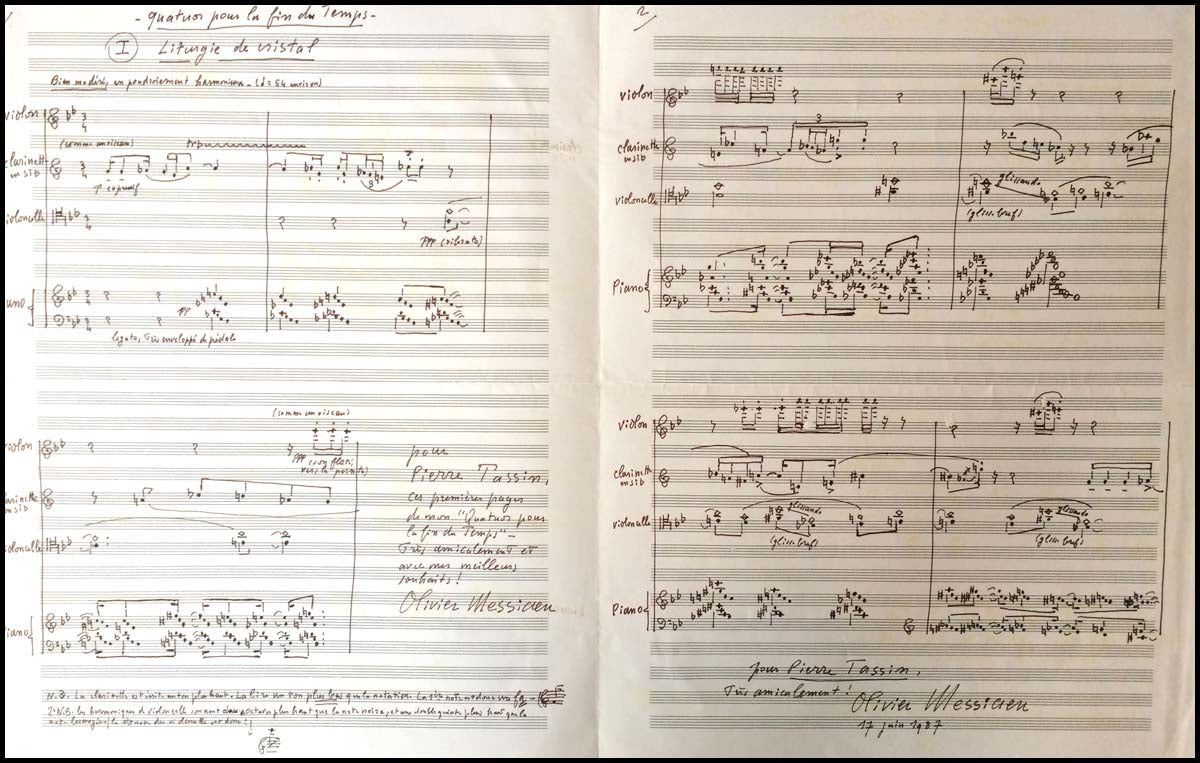 - Quatuor pour la fin du Temps -
I Liturgie de cristal
Bien modéré, en poudroiement harmonieux - (♪ = 54 environ)
violon
(comme un oiseau)
tr
clarinette
en sib
p expressif
3
violoncelle
ppp (vibrato)
piano
pp
legato, très enveloppé de pédale
(comme un oiseau)
violon
ppp
vers la pointe)
clarinette
en sib
violoncelle
piano
pour
Pierre Tassin,
ces premières pages
de mon "Quatuor pour
la fin du Temps" -
Très amicalement et
avec mes meilleurs
souhaits!
Olivier Messiaen
N.B. La clarinette est écrite un ton plus haut. La lire un ton plus bas que la notation. La 1ère note donc
2e N.B. les harmoniques du violoncelle sonnent
2
violon
clarinette
en sib
3
violoncelle
glissando
(gliss. bref)
Piano
violon
clarinette
en sib
violoncelle
glissando
(gliss. bref)
glissando
(gliss. bref)
Piano
pour Pierre Tassin,
Très amicalement!
Olivier Messiaen
17 juin 1987